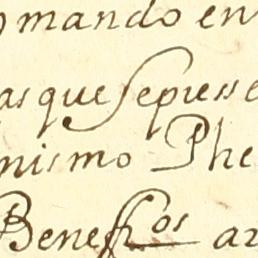 omando en
as que sepuss
nismo Phe
Benefi^os ar